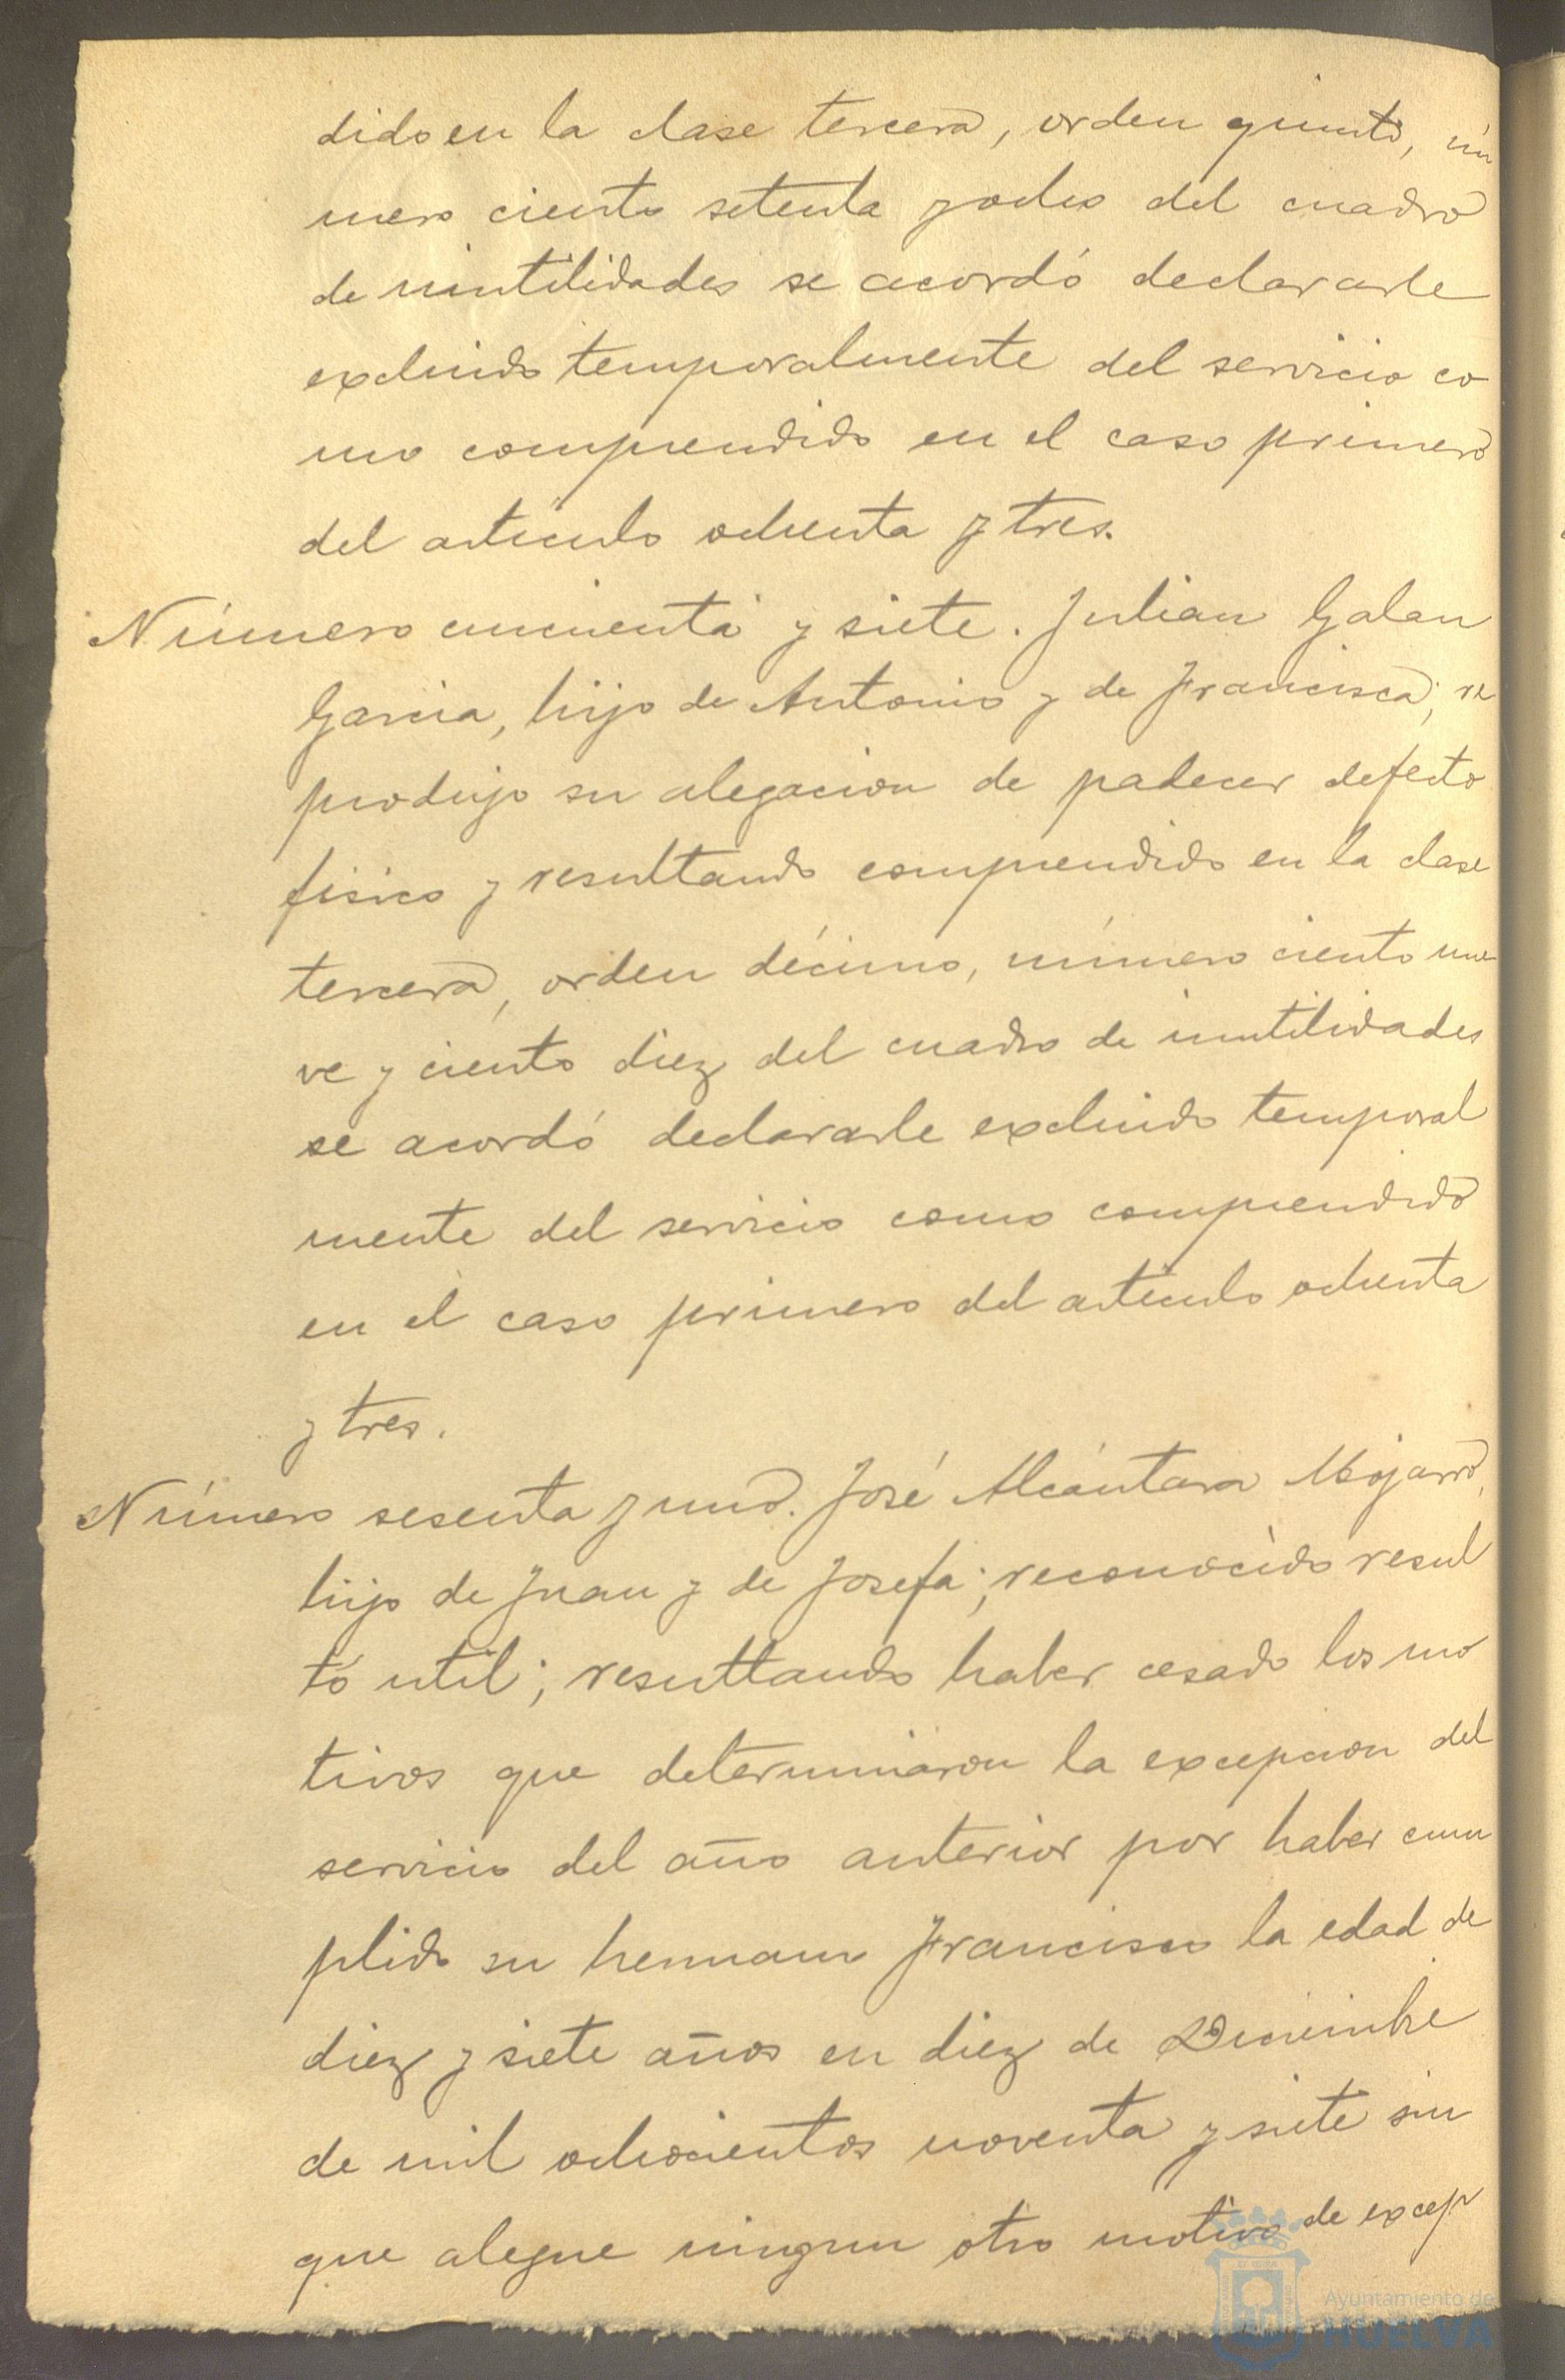 dido en la clase tercera, orden quinto, nú
mero ciento setenta y ocho del cuadro
de inutilidades se acordó declararle
excluido temporalmente del servicio co
mo comprendido en el caso primero
del articulo ochenta y tres.
Número cincuenta y siete. Julian Galan
Garcia, hijo de Antonio y de Francisca; re
produjo su alegacion de padecer defecto
fisico y resultando comprendido en la clase
tercera, orden décimo, número ciento nue
ve y ciento diez del cuadro de inutilidades
se acordó declararle excluido temporal
mente del servicio como comprendido
en el caso primero del articulo ochenta
y tres.
Número sesenta y uno. José Alcántara Mojarro,
hijo de Juan y de Josefa; reconocido resul
tó util; resultando haber cesado los mo
tivos que determinaron la excepcion del
servicio del año anterior por haber cum
plido su hermano Francisco la edad de
diez y siete años en diez de Diciembre
de mil ochocientos noventa y siete sin
que alegue ningun otro motivo de excep
Ayuntamiento de
HUELVA